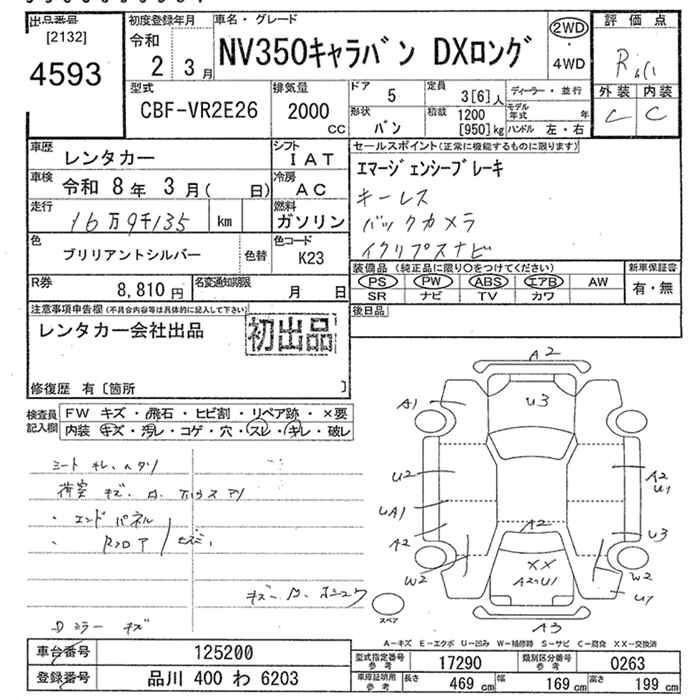 出品番号
[2132]
4593
初度登録年月
令和
2 3月
車名・グレード
NV350キャラバン DXロング
2WD
・
4WD
評価点
外装 内装
C C
型式
CBF-VR2E26
排気量
2000
CC
ドア
5
定員
3[6]人
ディーラー・並行
形状
バン
積載
1200
[950]kg
モデル年式 年
ハンドル 左・右
車歴
レンタカー
シフト
IAT
車検
令和 8年 3月( 日)
冷房
AC
走行
16万9千135 km
燃料
ガソリン
色
ブリリアントシルバー
色替
色コード
K23
R券
8,810円
名変通知期限
月 日
セールスポイント(正常に機能するものに限ります)
エマージェンシーブレーキ
キーレス
バックカメラ
イクリプスナビ
装備品 (純正品に限り○をつけてください)
PS PW ABS エアB AW
SR ナビ TV カワ
新車保証書
有・無
後日品
注意事項申告欄(不具合内容等は具体的に記入して下さい)
レンタカー会社出品
初出品
修復歴 有〔箇所 〕
検査員
記入欄
FW キズ・飛石・ヒビ割・リペア跡・×要
内装 キズ・汚レ・コゲ・穴・スレ・キレ・破レ
シート キレ、ヘタリ
荷室 キズ
・エンドパネル
・Rフロア
Dミラー キズ
A2
A1
U3
U2
UA1
A2
W2
A2
U1
U3
W2
U1
A2
XX
A2U1
A3
スペア
A-キズ E-エクボ U-凹み W-補修跡 S-サビ C-腐食 XX-交換済
車台番号
125200
登録番号
品川 400 わ 6203
型式指定番号
参考
17290
類別区分番号
参考
0263
車庫証明用
参考
長さ
469 cm
幅
169 cm
高さ
199 cm